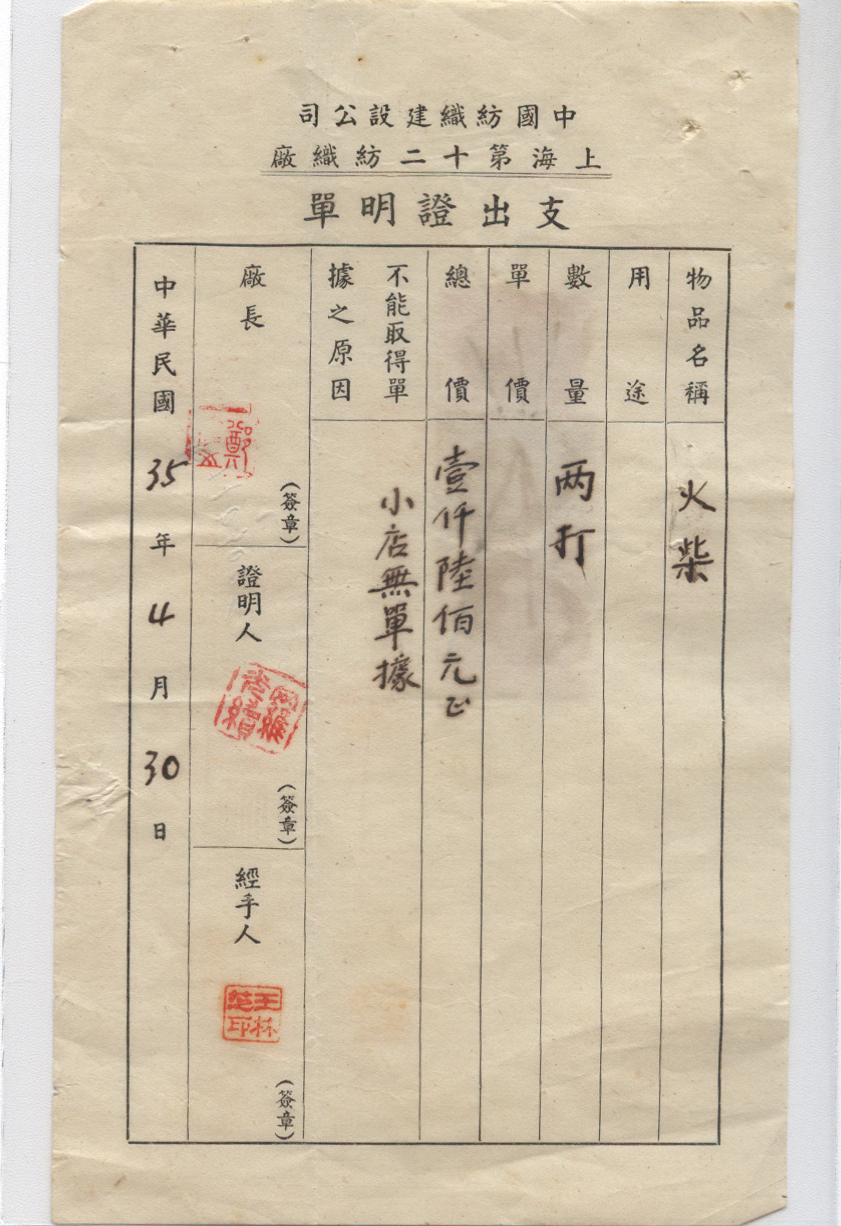 中國紡織建設公司
上海第十二紡織廠
支出證明單
物品名稱 火柴
用途
數量 两打
單價
總價 壹仟陸佰元正
不能取得單據之原因 小店無單據
廠長 (簽章)
鄭
證明人 (簽章)
經手人 (簽章)
王林
印
中華民國35年4月30日